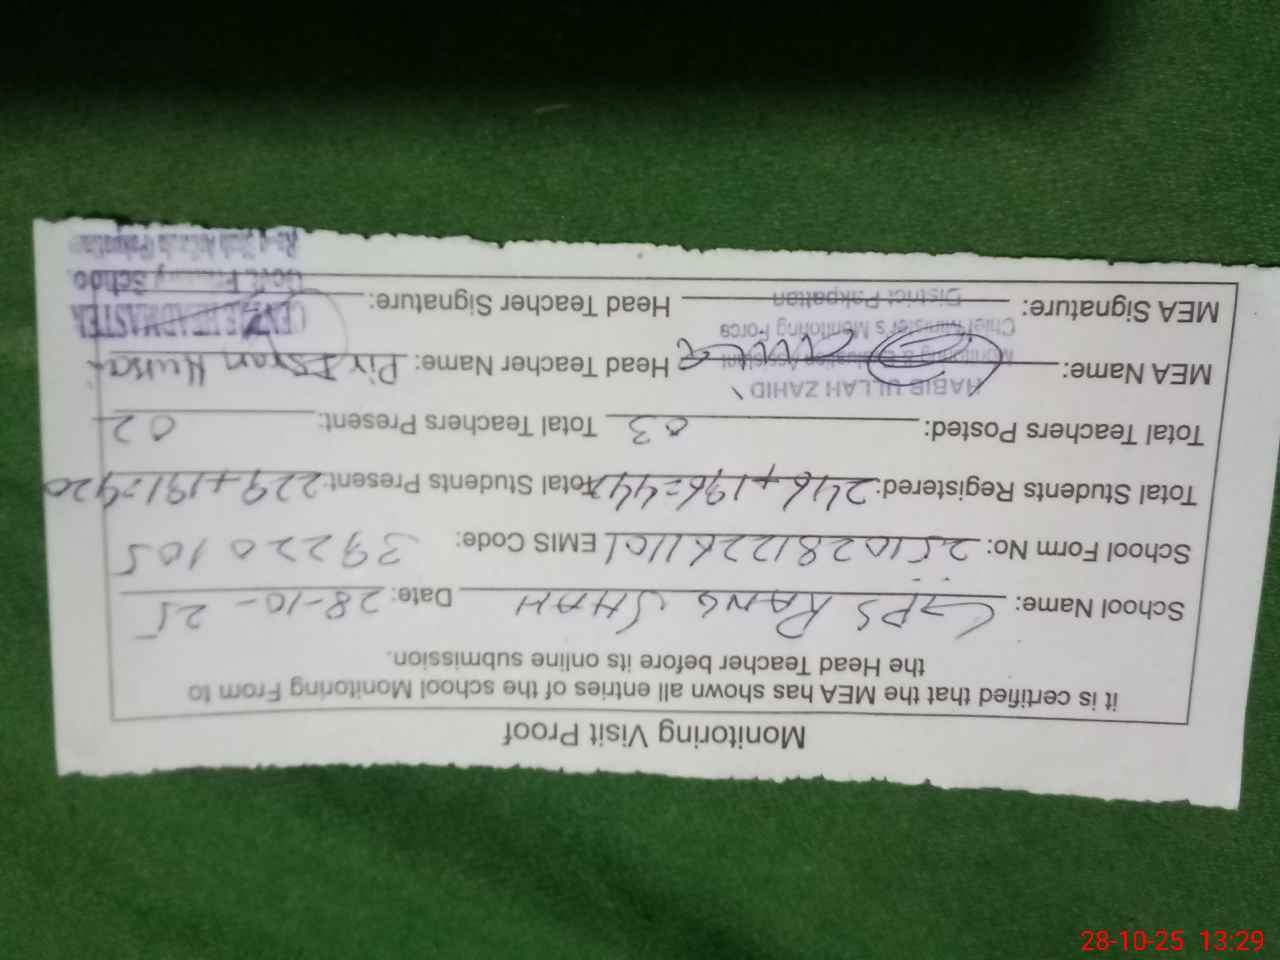 Monitoring Visit Proof
it is certified that the MEA has shown all entries of the school Monitoring From to
the Head Teacher before its online submission.
School Name: GPS RANG SHAH Date: 28-10-25
School Form No: EMIS Code: 39220105
Total Students Registered: 246+196=442 Total Students Present: 229+191=420
Total Teachers Posted: 03 Total Teachers Present: 02
HABIB ULLAH ZAHID
MEA Name: Monitoring & Evaluation Assistant Head Teacher Name: Pir
Chief Minister's Monitoring Force
MEA Signature: District Pakpattan Head Teacher Signature:
HEADMASTER
Govt. Primary School
28-10-25 13:29